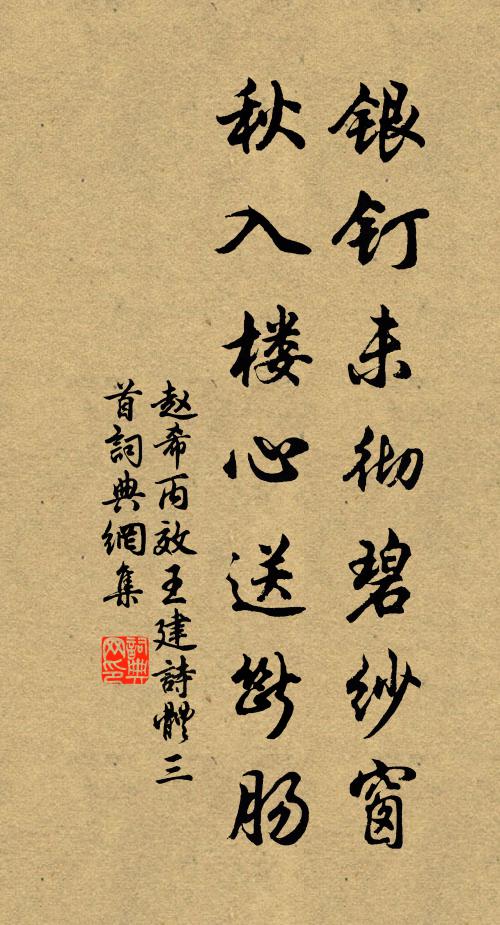 银钉未彻碧纱窗
秋入楼心送断肠
赵希丙效王建詩體三
首詞典網集
詞典网印